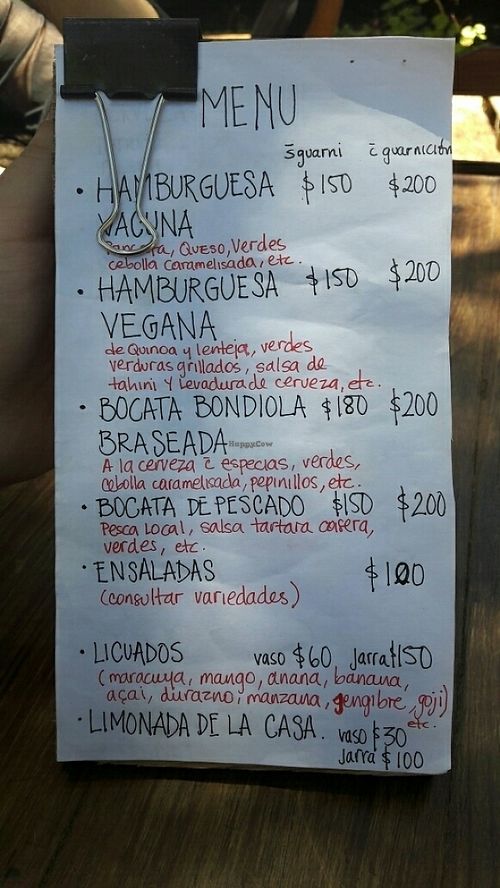 MENU
s̄guarni c̄ guarnición
• HAMBURGUESA $150 $200
VACUNA
Panceta, Queso, Verdes
cebolla caramelisada, etc.
• HAMBURGUESA $150 $200
VEGANA
de Quinoa y lenteja, verdes
verduras grillados, salsa de
tahini y Levadura de cerveza, etc.
• BOCATA BONDIOLA $180 $200
BRASEADA
A la cerveza c̄ especias, verdes,
cebolla caramelisada, pepinillos, etc.
• BOCATA DE PESCADO $150 $200
Pesca Local, salsa tartara casera,
verdes, etc.
• ENSALADAS $100
(consultar variedades)
• LICUADOS vaso $60 Jarra $150
(maracuya, mango, anana, banana,
açai, durazno, manzana, gengibre, goji)
etc.
• LIMONADA DE LA CASA. vaso $30
Jarra $100
HappyCow